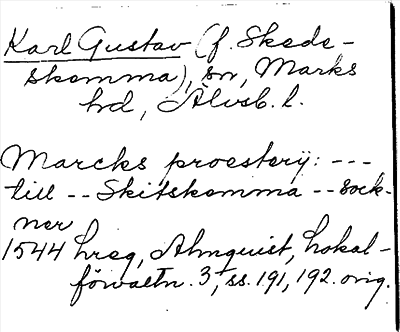 Karl Gustav (f. Skede-
skomma), sn, Marks
hrd, Älvsb. l.
Marcks proesterij: ---
till -- Skitskomma -- sock-
ner
1544 hreg, Almquist, Lokal-
förvaltn. 3, ss. 191, 192. orig.